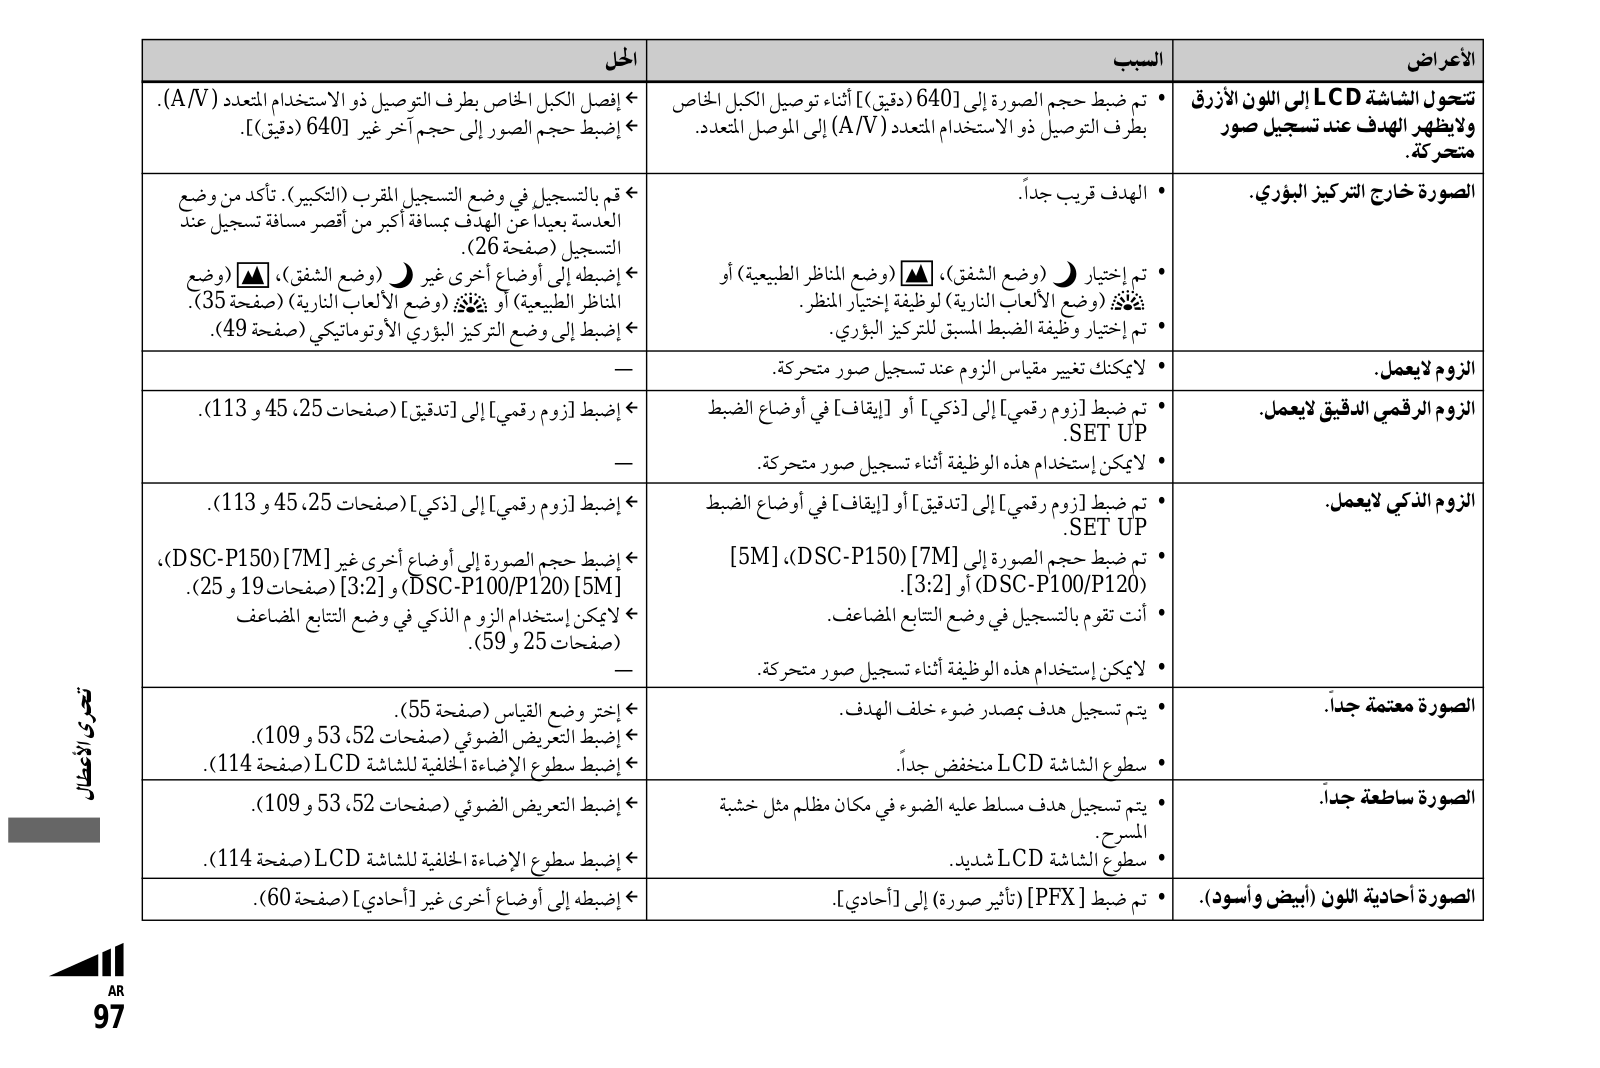 الأعراض
السبب
الحل
تتحول الشاشة LCD إلى اللون الأزرق
ولايظهر الهدف عند تسجيل صور
متحركة.
• تم ضبط حجم الصورة إلى [640 (دقيق)] أثناء توصيل الكبل الخاص
بطرف التوصيل ذو الاستخدام المتعدد (A/V) إلى الموصل المتعدد.
← إفصل الكبل الخاص بطرف التوصيل ذو الاستخدام المتعدد (A/V).
← إضبط حجم الصور إلى حجم آخر غير [640 (دقيق)].
الصورة خارج التركيز البؤري.
• الهدف قريب جداً.
← قم بالتسجيل في وضع التسجيل المقرب (التكبير). تأكد من وضع
العدسة بعيداً عن الهدف بمسافة أكبر من أقصر مسافة تسجيل عند
التسجيل (صفحة 26).
• تم إختيار (وضع الشفق)، (وضع المناظر الطبيعية) أو
(وضع الألعاب النارية) لوظيفة إختيار المنظر.
← إضبطه إلى أوضاع أخرى غير (وضع الشفق)، (وضع
المناظر الطبيعية) أو (وضع الألعاب النارية) (صفحة 35).
• تم إختيار وظيفة الضبط المسبق للتركيز البؤري.
← إضبط إلى وضع التركيز البؤري الأوتوماتيكي (صفحة 49).
الزوم لايعمل.
• لايمكنك تغيير مقياس الزوم عند تسجيل صور متحركة.
—
الزوم الرقمي الدقيق لايعمل.
• تم ضبط [زوم رقمي] إلى [ذكي] أو [إيقاف] في أوضاع الضبط
SET UP.
← إضبط [زوم رقمي] إلى [تدقيق] (صفحات 25، 45 و 113).
• لايمكن إستخدام هذه الوظيفة أثناء تسجيل صور متحركة.
—
الزوم الذكي لايعمل.
• تم ضبط [زوم رقمي] إلى [تدقيق] أو [إيقاف] في أوضاع الضبط
SET UP.
← إضبط [زوم رقمي] إلى [ذكي] (صفحات 25، 45 و 113).
• تم ضبط حجم الصورة إلى [7M] (DSC-P150)، [5M]
(DSC-P100/P120) أو [3:2].
← إضبط حجم الصورة إلى أوضاع أخرى غير [7M] (DSC-P150)،
[5M] (DSC-P100/P120) و [3:2] (صفحات 19 و 25).
• أنت تقوم بالتسجيل في وضع التتابع المضاعف.
← لايمكن إستخدام الزو م الذكي في وضع التتابع المضاعف
(صفحات 25 و 59).
• لايمكن إستخدام هذه الوظيفة أثناء تسجيل صور متحركة.
—
الصورة معتمة جداً.
• يتم تسجيل هدف بمصدر ضوء خلف الهدف.
← إختر وضع القياس (صفحة 55).
← إضبط التعريض الضوئي (صفحات 52، 53 و 109).
• سطوع الشاشة LCD منخفض جداً.
← إضبط سطوع الإضاءة الخلفية للشاشة LCD (صفحة 114).
الصورة ساطعة جداً.
• يتم تسجيل هدف مسلط عليه الضوء في مكان مظلم مثل خشبة
المسرح.
← إضبط التعريض الضوئي (صفحات 52، 53 و 109).
• سطوع الشاشة LCD شديد.
← إضبط سطوع الإضاءة الخلفية للشاشة LCD (صفحة 114).
الصورة أحادية اللون (أبيض وأسود).
• تم ضبط [PFX] (تأثير صورة) إلى [أحادي].
← إضبطه إلى أوضاع أخرى غير [أحادي] (صفحة 60).
تحرى الأعطال
AR
97